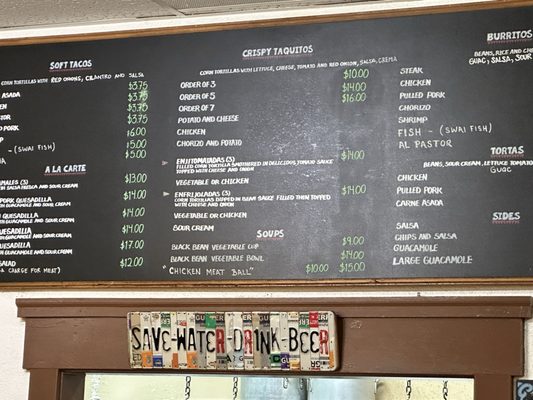 SOFT TACOS
CORN TORTILLAS WITH RED ONIONS, CILANTRO AND SALSA
ASADA $3.75
$3.75
$3.75
$3.75
PORK $6.00
- (SWAI FISH) $5.00
$5.00
A LA CARTE
(3) $13.00
SALSA FRESCA AND SOUR CREAM
PORK QUESADILLA $14.00
WITH GUACAMOLE AND SOUR CREAM
QUESADILLA $14.00
WITH GUACAMOLE AND SOUR CREAM
QUESADILLA $14.00
WITH GUACAMOLE AND SOUR CREAM
QUESADILLA $17.00
WITH GUACAMOLE AND SOUR CREAM
SALAD $12.00
CHARGE FOR MEAT)
CRISPY TAQUITOS
CORN TORTILLAS WITH LETTUCE, CHEESE, TOMATO AND RED ONION, SALSA, CREMA
ORDER OF 3 $10.00
ORDER OF 5 $14.00
ORDER OF 7 $16.00
POTATO AND CHEESE
CHICKEN
CHORIZO AND POTATO
ENJITOMAJADAS (3) $14.00
FILLED CORN TORTILLAS SMOTHERED IN DELICIOUS, TOMATO SAUCE
TOPPED WITH CHEESE AND ONION
VEGETABLE OR CHICKEN
ENFRIJOLADAS (3) $14.00
CORN TORTILLAS DIPPED IN BEAN SAUCE FILLED THEN TOPPED
WITH CHEESE AND ONION
VEGETABLE OR CHICKEN
SOUR CREAM
SOUPS
BLACK BEAN VEGETABLE CUP $9.00
BLACK BEAN VEGETABLE BOWL $14.00
"CHICKEN MEAT BALL" $10.00 $15.00
BURRITOS
BEANS, RICE AND CHEE
GUAC, SALSA, SOUR
STEAK
CHICKEN
PULLED PORK
CHORIZO
SHRIMP
FISH - (SWAI FISH)
AL PASTOR
TORTAS
BEANS, SOUR CREAM, LETTUCE TOMATO
GUAC
CHICKEN
PULLED PORK
CARNE ASADA
SIDES
SALSA
CHIPS AND SALSA
GUACAMOLE
LARGE GUACAMOLE
SAVE-WATER-DR1NK-BEER